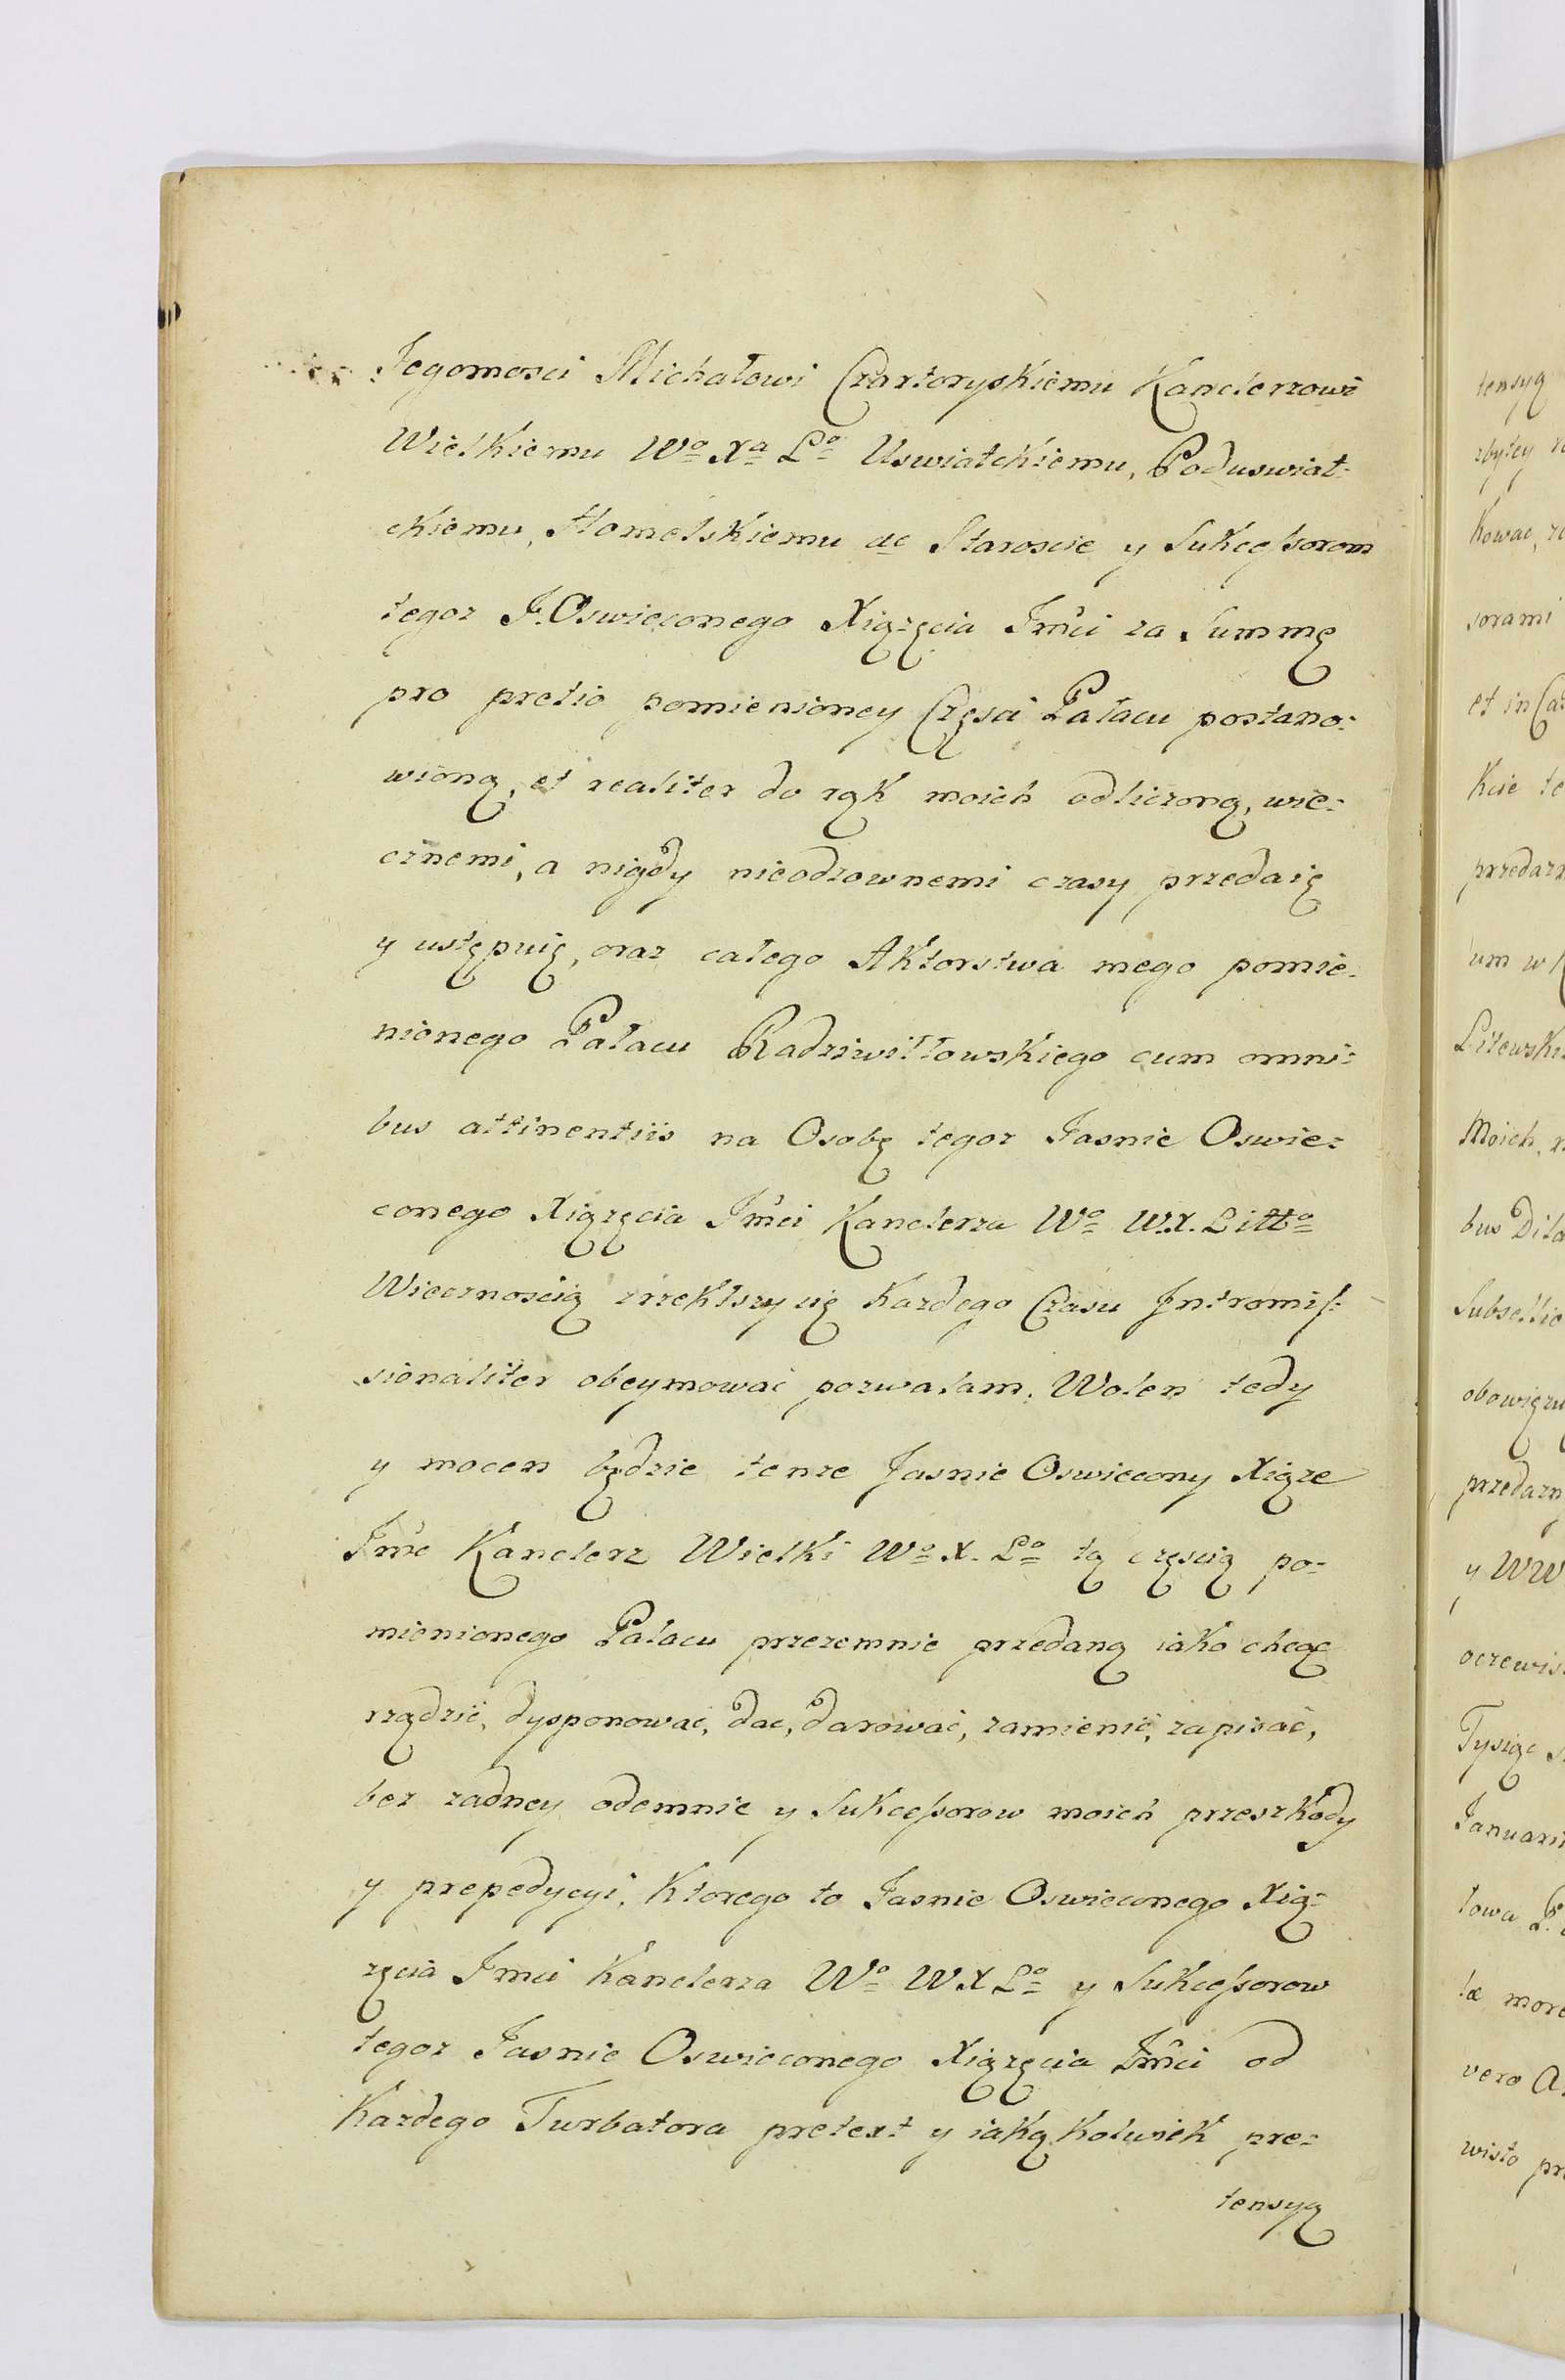 Jegomosci Michałowi Czartoryskiemu Kanclerzowi
Wielkiemu Wo Xa Lo Uswiatckiemu, Poduswiat-
ckiemu, Homelskiemu ac Staroscie y Sukceſsorom
tegoz J. Oswieconego Xiązęcia Jmci za Summę
pro pretio pomienioney Częsci Pałacu postano-
wioną, et realiter do rąk moich odliczoną, wie-
cznemi, a nigdy nieodzownemi czasy przedaię
y ustępuię, oraz całego Aktorstwa mego pomie-
nionego Pałacu Radziwiłłowskiego cum omni-
bus attinentiis na Osobę tegoz Jasnie Oswie-
conego Xiązęcia Jmci Kanclerza Wo W.X. Litto
Wiecznoscią zrzekłszy się kazdego Czasu Intromiſ-
sionaliter obeymowac pozwalam. Wolen tedy
y mocen będzie tenze Jasnie Oswiecony Xiąze
Jmc Kanclerz Wielki Wo X. Lo tą częscią po-
mienionego Pałacu przezemnie przedaną iako chcąc
rządzić, dysponowac, dac, darowac, zamienić, zapisać,
bez zadney odemnie y Sukceſsorow moich przeszkody
y prepedycyi. Ktorego to Jasnie Oswieconego Xią-
zęcia Jmci Kanclerza Wo W X Lo y Sukceſsorow
tegoz Jasnie Oswieconego Xiązęcia Jmci od
Kazdego Turbatora pretext y iaką kolwiek pre-
tensyą
tensyą
zbytey
kowac,
sorami
et in
kcie
przedazn
um w
Litewski
Moich,
bus
Subsellio
obowięzu
przedazn
y WW
oczewis
Tysiąc
Januarii
towa
læ more
vero
wisto